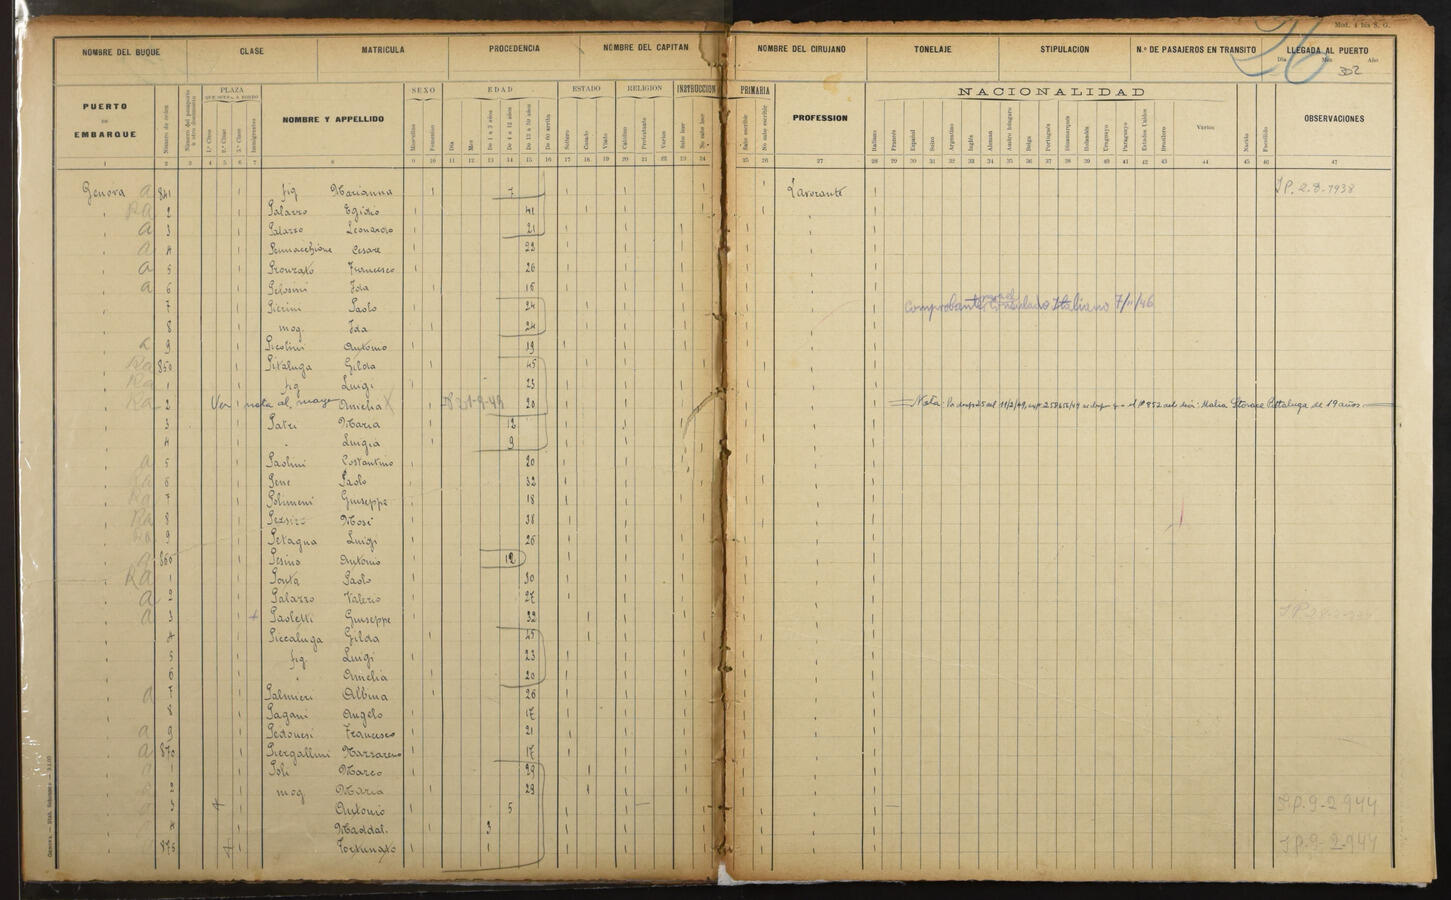 Mod. 4 bis S. G.
NOMBRE DEL BUQUE CLASE MATRICULA PROCEDENCIA NOMBRE DEL CAPITAN NOMBRE DEL CIRUJANO TONELAJE STIPULACION N.º DE PASAJEROS EN TRANSITO LLEGADA AL PUERTO
Dia Mes Año
26
302
PUERTO DE EMBARQUE
Número de orden
PLAZA
1.ª Clase 2.ª Clase 3.ª Clase Inmigrantes
NOMBRE Y APPELLIDO
SEXO
Masculino Femenino
EDAD
Dia Mes De 1 a 3 años De 4 a 12 años De 13 a 59 años De 60 arriba
ESTADO
Soltero Casado Viudo
RELIGION
Católico Protestante Varios
INSTRUCCION PRIMARIA
Sabe leer No sabe leer Sabe escribir No sabe escribir
PROFESSION
NACIONALIDAD
Italiano Francés Español Suizo Argentino Inglés Aleman Austro húngaro Belga Portugués Dinamarqués Holandés Uruguayo Paraguayo Estados Unidos Brasilero Varios
Nacido Fallecido
OBSERVACIONES
1 2 3 4 5 6 7 8 9 10 11 12 13 14 15 16 17 18 19 20 21 22 23 24 25 26 27 28 29 30 31 32 33 34 35 36 37 38 39 40 41 42 43 44 45 46 47
Genova a 841 fig Marianna 7 Lavorante I P. 2-8-1938
Ra 2 Palazzo Egidio 41
a 3 Palazzo Leonardo 21
a 4 Pennacchione Cesare 23
a 5 Pronzato Francesco 26
a 6 Pelosini Ida 16
7 Pierini Paolo 24 Comprobante Consulado Italiano 7/11/46
8 mog. Ida 24
a 9 Picolini Antonio 19
Ra 850 Pitaluga Gilda 45
Ra 1 fig Luigi 23
Ra 2 Ver nota al margen Amelia 20 Nota Storace Pittaluga de 19 años
3 Patri Maria 12
4 " Luigia 9
a 5 Paolini Costantino 20
6 Pene Paolo 32
7 Polimeni Giuseppe 18
Ra 8 Mosè 38
9 Petagna Luigi 26
a 860 Pesino Antonio 12
Ra 1 Ponta Paolo 30
a 2 Palazzo Valerio 27
a 3 Paoletti Giuseppe 32
4 Piccaluga Gilda 45
5 fig Luigi 23
6 " Amelia 20
a 7 Palmieri Albina 26
8 Pagani Angelo 17
a 9 Pedonesi Francesco 21
a 870 Piergallini Nazzareno 17
1 Poli Marco 29
2 mog Maria 29
3 Antonio 5 I P. 9-2-944
4 Maddal. 3
875 Fortunato 1 I P. 9-2-944